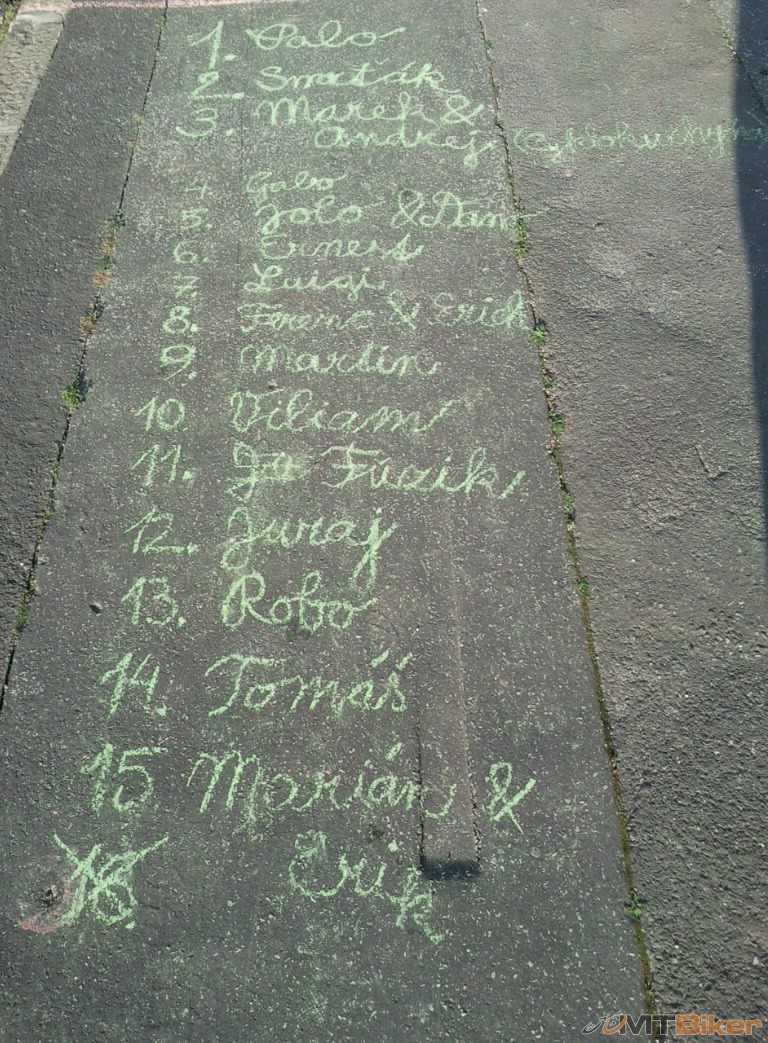 1. Palo
2. Smaťák
3. Marek &
Andrej
4. Gabo
5. Jolo & Dan
6. Ernest
7. Luigi
8. Ferenc & Erich
9. Martin
10. Viliam
11. Jo Fuzik
12. Juraj
13. Robo
14. Tomáš
15 Marián &
Erik
MTBiker